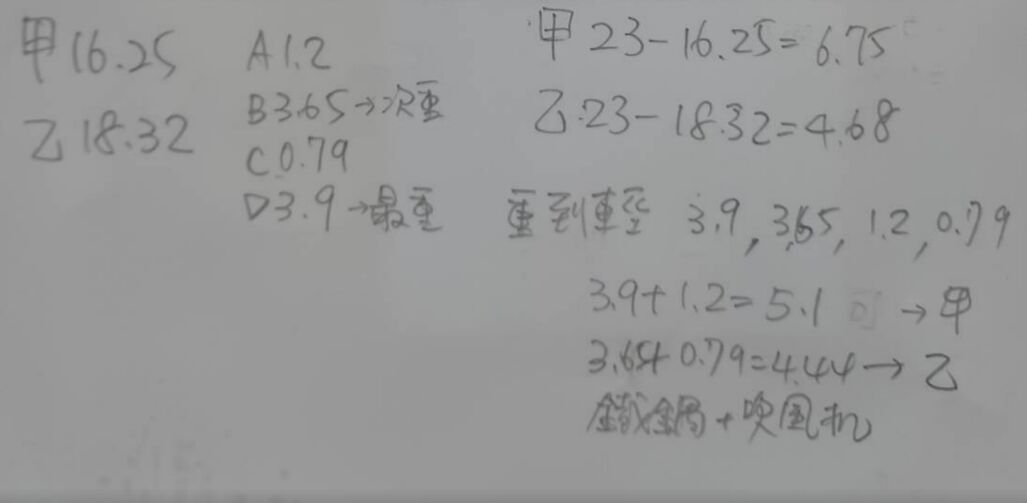 甲16.25
乙18.32
A1.2
B3.65→次重
C0.79
D3.9→最重
甲23-16.25=6.75
乙.23-18.32=4.68
重到輕 3.9, 3.65, 1.2, 0.79
3.9+1.2=5.1 可→甲
3.65+0.79=4.44→乙
鐵鍋+吹風机